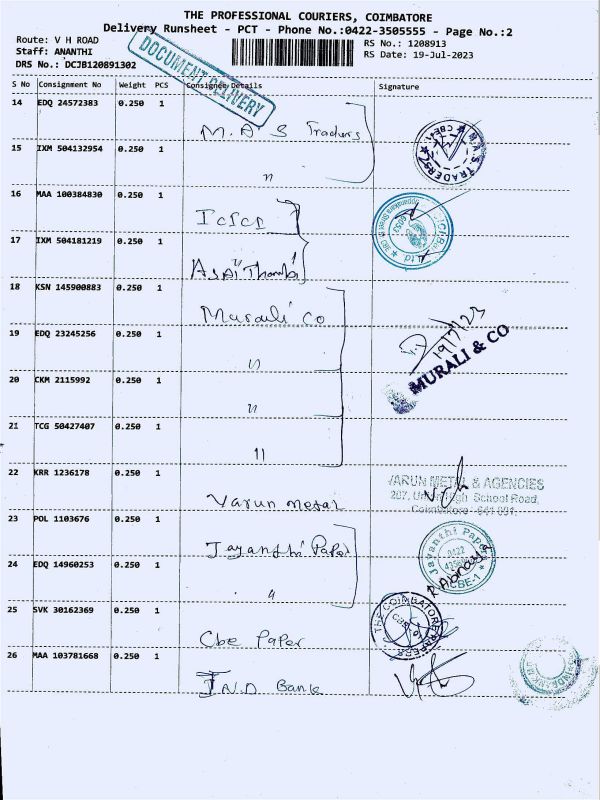 THE PROFESSIONAL COURIERS, COIMBATORE
Delivery Runsheet - PCT - Phone No.:0422-3505555 - Page No.:2
Route: V H ROAD
RS No.: 1208913
Staff: ANANTHI
RS Date: 19-Jul-2023
DRS No.: DCJB120891302
DOCUMENT DELIVERY
S No Consignment No Weight PCS Consignee Details Signature
14 EDQ 24572383 0.250 1
M.A.S Traders
M.A.S TRADERS
15 IXM 504132954 0.250 1
"
16 MAA 100384830 0.250 1
ICICI
17 IXM 504181219 0.250 1
18 KSN 145900883 0.250 1
Murali Co
19 EDQ 23245256 0.250 1
"
19/7/23
MURALI & CO
20 CKM 2115992 0.250 1
"
21 TCG 50427407 0.250 1
"
22 KRR 1236178 0.250 1
Varun metal
VARUN METAL & AGENCIES
207, Union High School Road,
Coimbatore - 641 001.
23 POL 1103676 0.250 1
Jayanthi Paper
Jayanthi Paper
0422
CBE-1
24 EDQ 14960253 0.250 1
"
25 SVK 30162369 0.250 1
Cbe Paper
THE COIMBATORE PAPERS
26 MAA 103781668 0.250 1
I.N.D. Bank